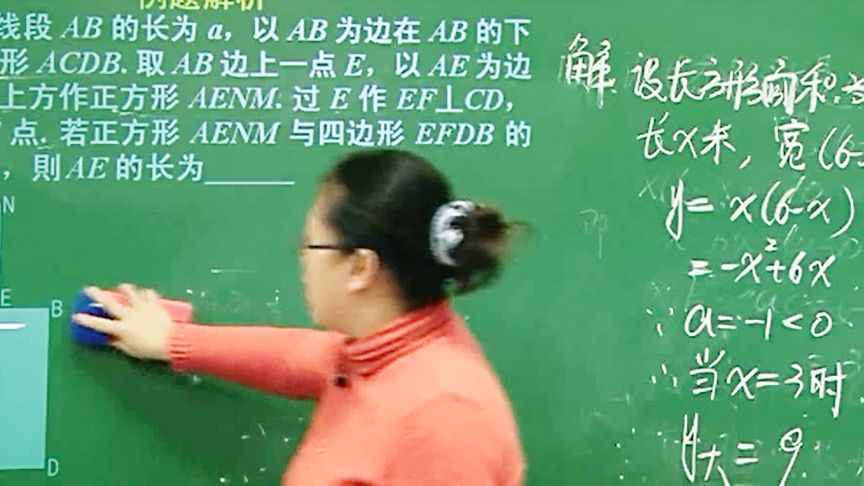 例题解析
线段 AB 的长为 a，以 AB 为边在 AB 的下
形 ACDB. 取 AB 边上一点 E，以 AE 为边
上方作正方形 AENM. 过 E 作 EF⊥CD，
点. 若正方形 AENM 与四边形 EFDB 的
，则 AE 的长为______
N
E B
D
解 设长方形面积
长x米，宽(6-
y= x(6-x)
=-x²+6x
∵ a=-1<0
∴ 当x=3时
y大=9